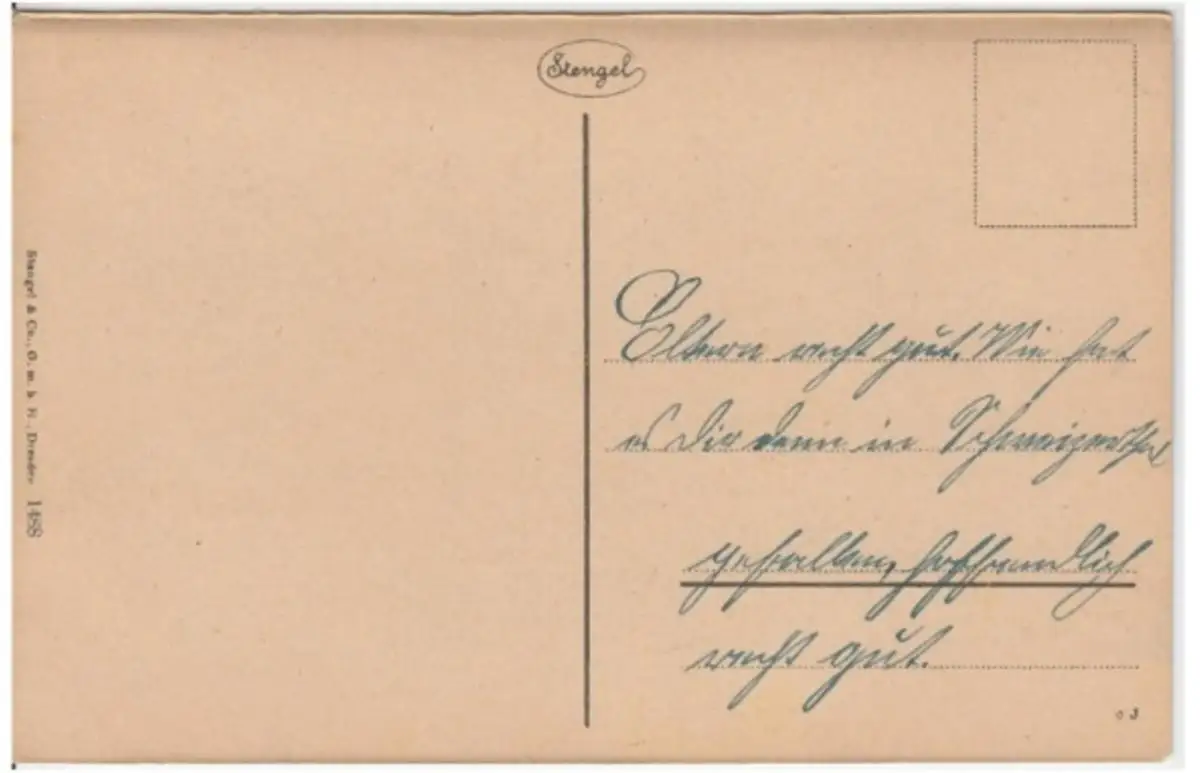 Stengel
Eltern recht gut. Wie hat
es Dir denn in Schweizerthal
gefallen, hoffendlich
recht gut.
Stengel & Co., G. m. b. H., Dresden 1488
03